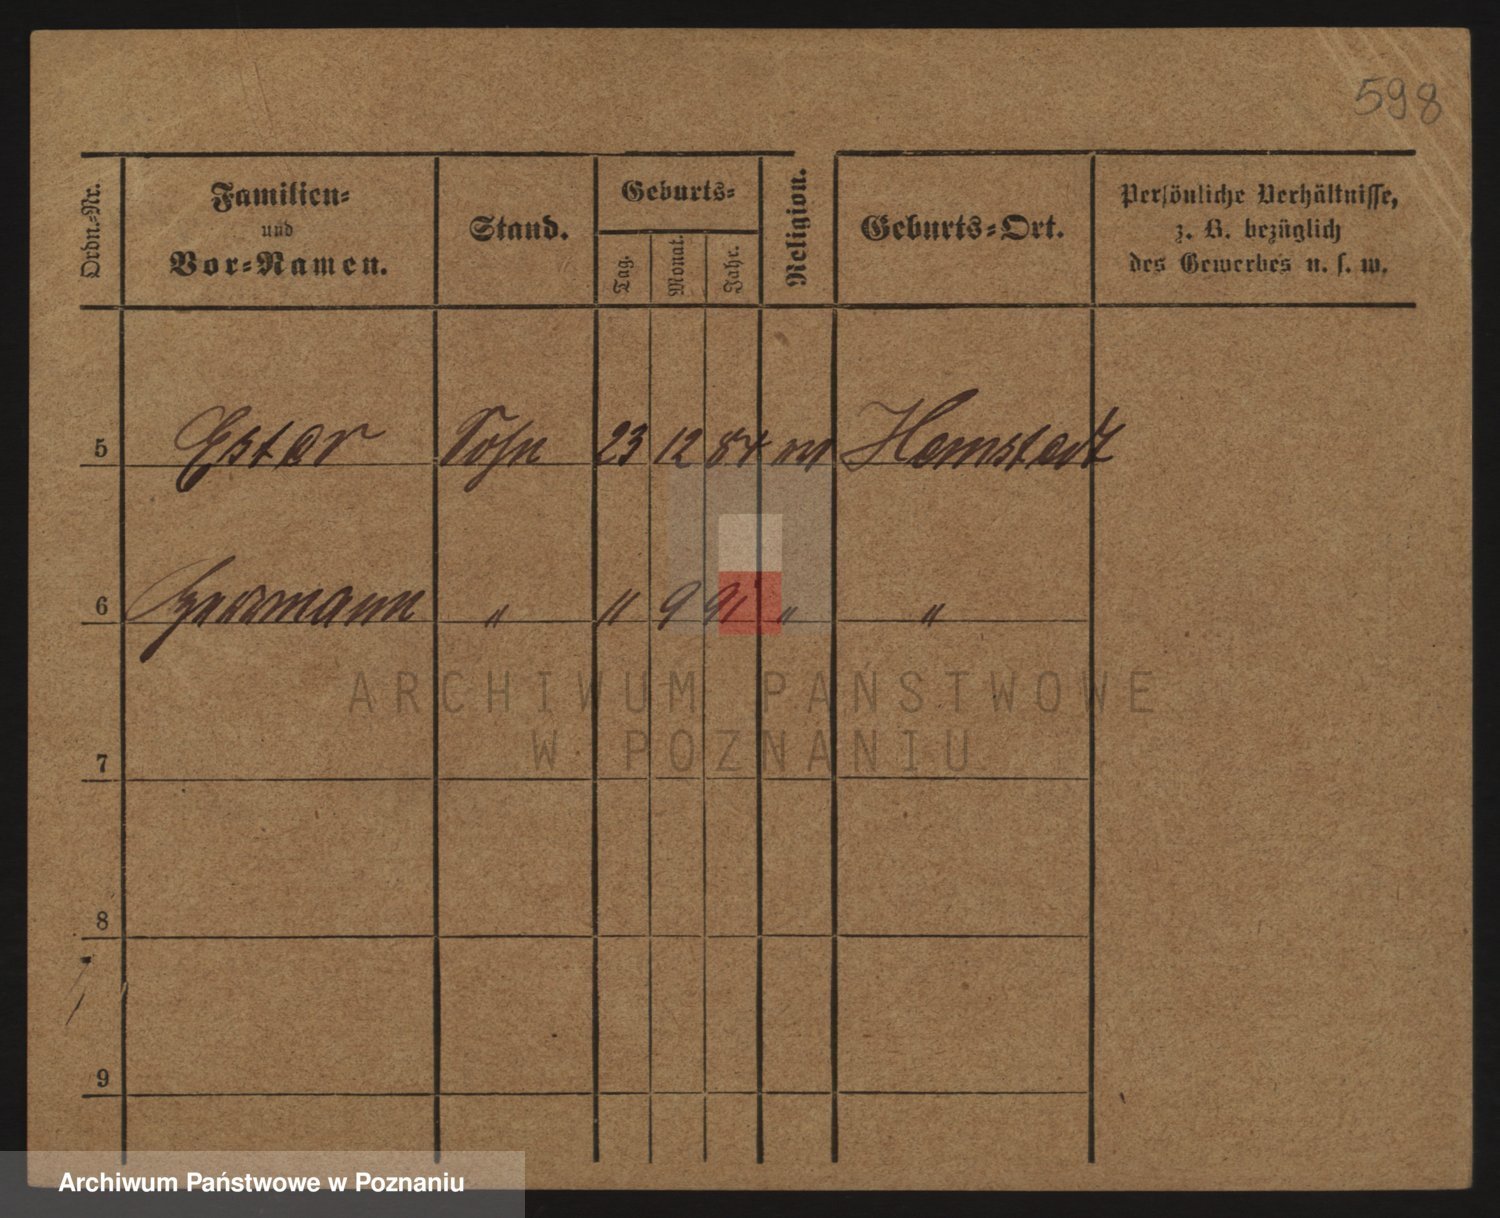 598
Ordn.-Nr.
Familien-
und
Vor-Namen.
Stand.
Geburts-
Tag.
Monat.
Jahr.
Religion.
Geburts-Ort.
Persönliche Verhältnisse,
z. B. bezüglich
des Gewerbes u. s. w.
5 Sohn 23 12 84
6 Herrmann " 11 9 91 " "
7
8
9
ARCHIWUM PAŃSTWOWE
W POZNANIU
Archiwum Państwowe w Poznaniu